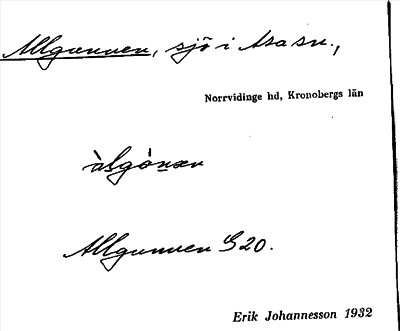 Allgunnen, sjö i Asa sn.,
Norrvidinge hd, Kronobergs län
àlgónən
Allgunnen G20.
Erik Johannesson 1932